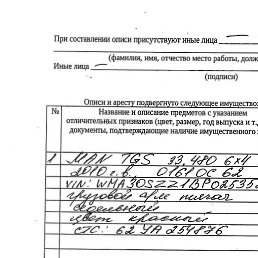 При составлении описи присутствуют иные лица
(фамилия, имя, отчество место работы, долж
Иные лица
(подписи)
Описи и аресту подвергнуто следующее имущество:
№
Название и описание предметов с указанием
отличительных признаков (цвет, размер, год выпуска и т.,
документы, подтверждающие наличие имущественного
1 MAN TGS 33.480 6х4
2010 г.в. 0161 ОС 62
VIN: WMA30SZZ1BP025352
грузовой
цвет красный
СТС: 62 УА 254876